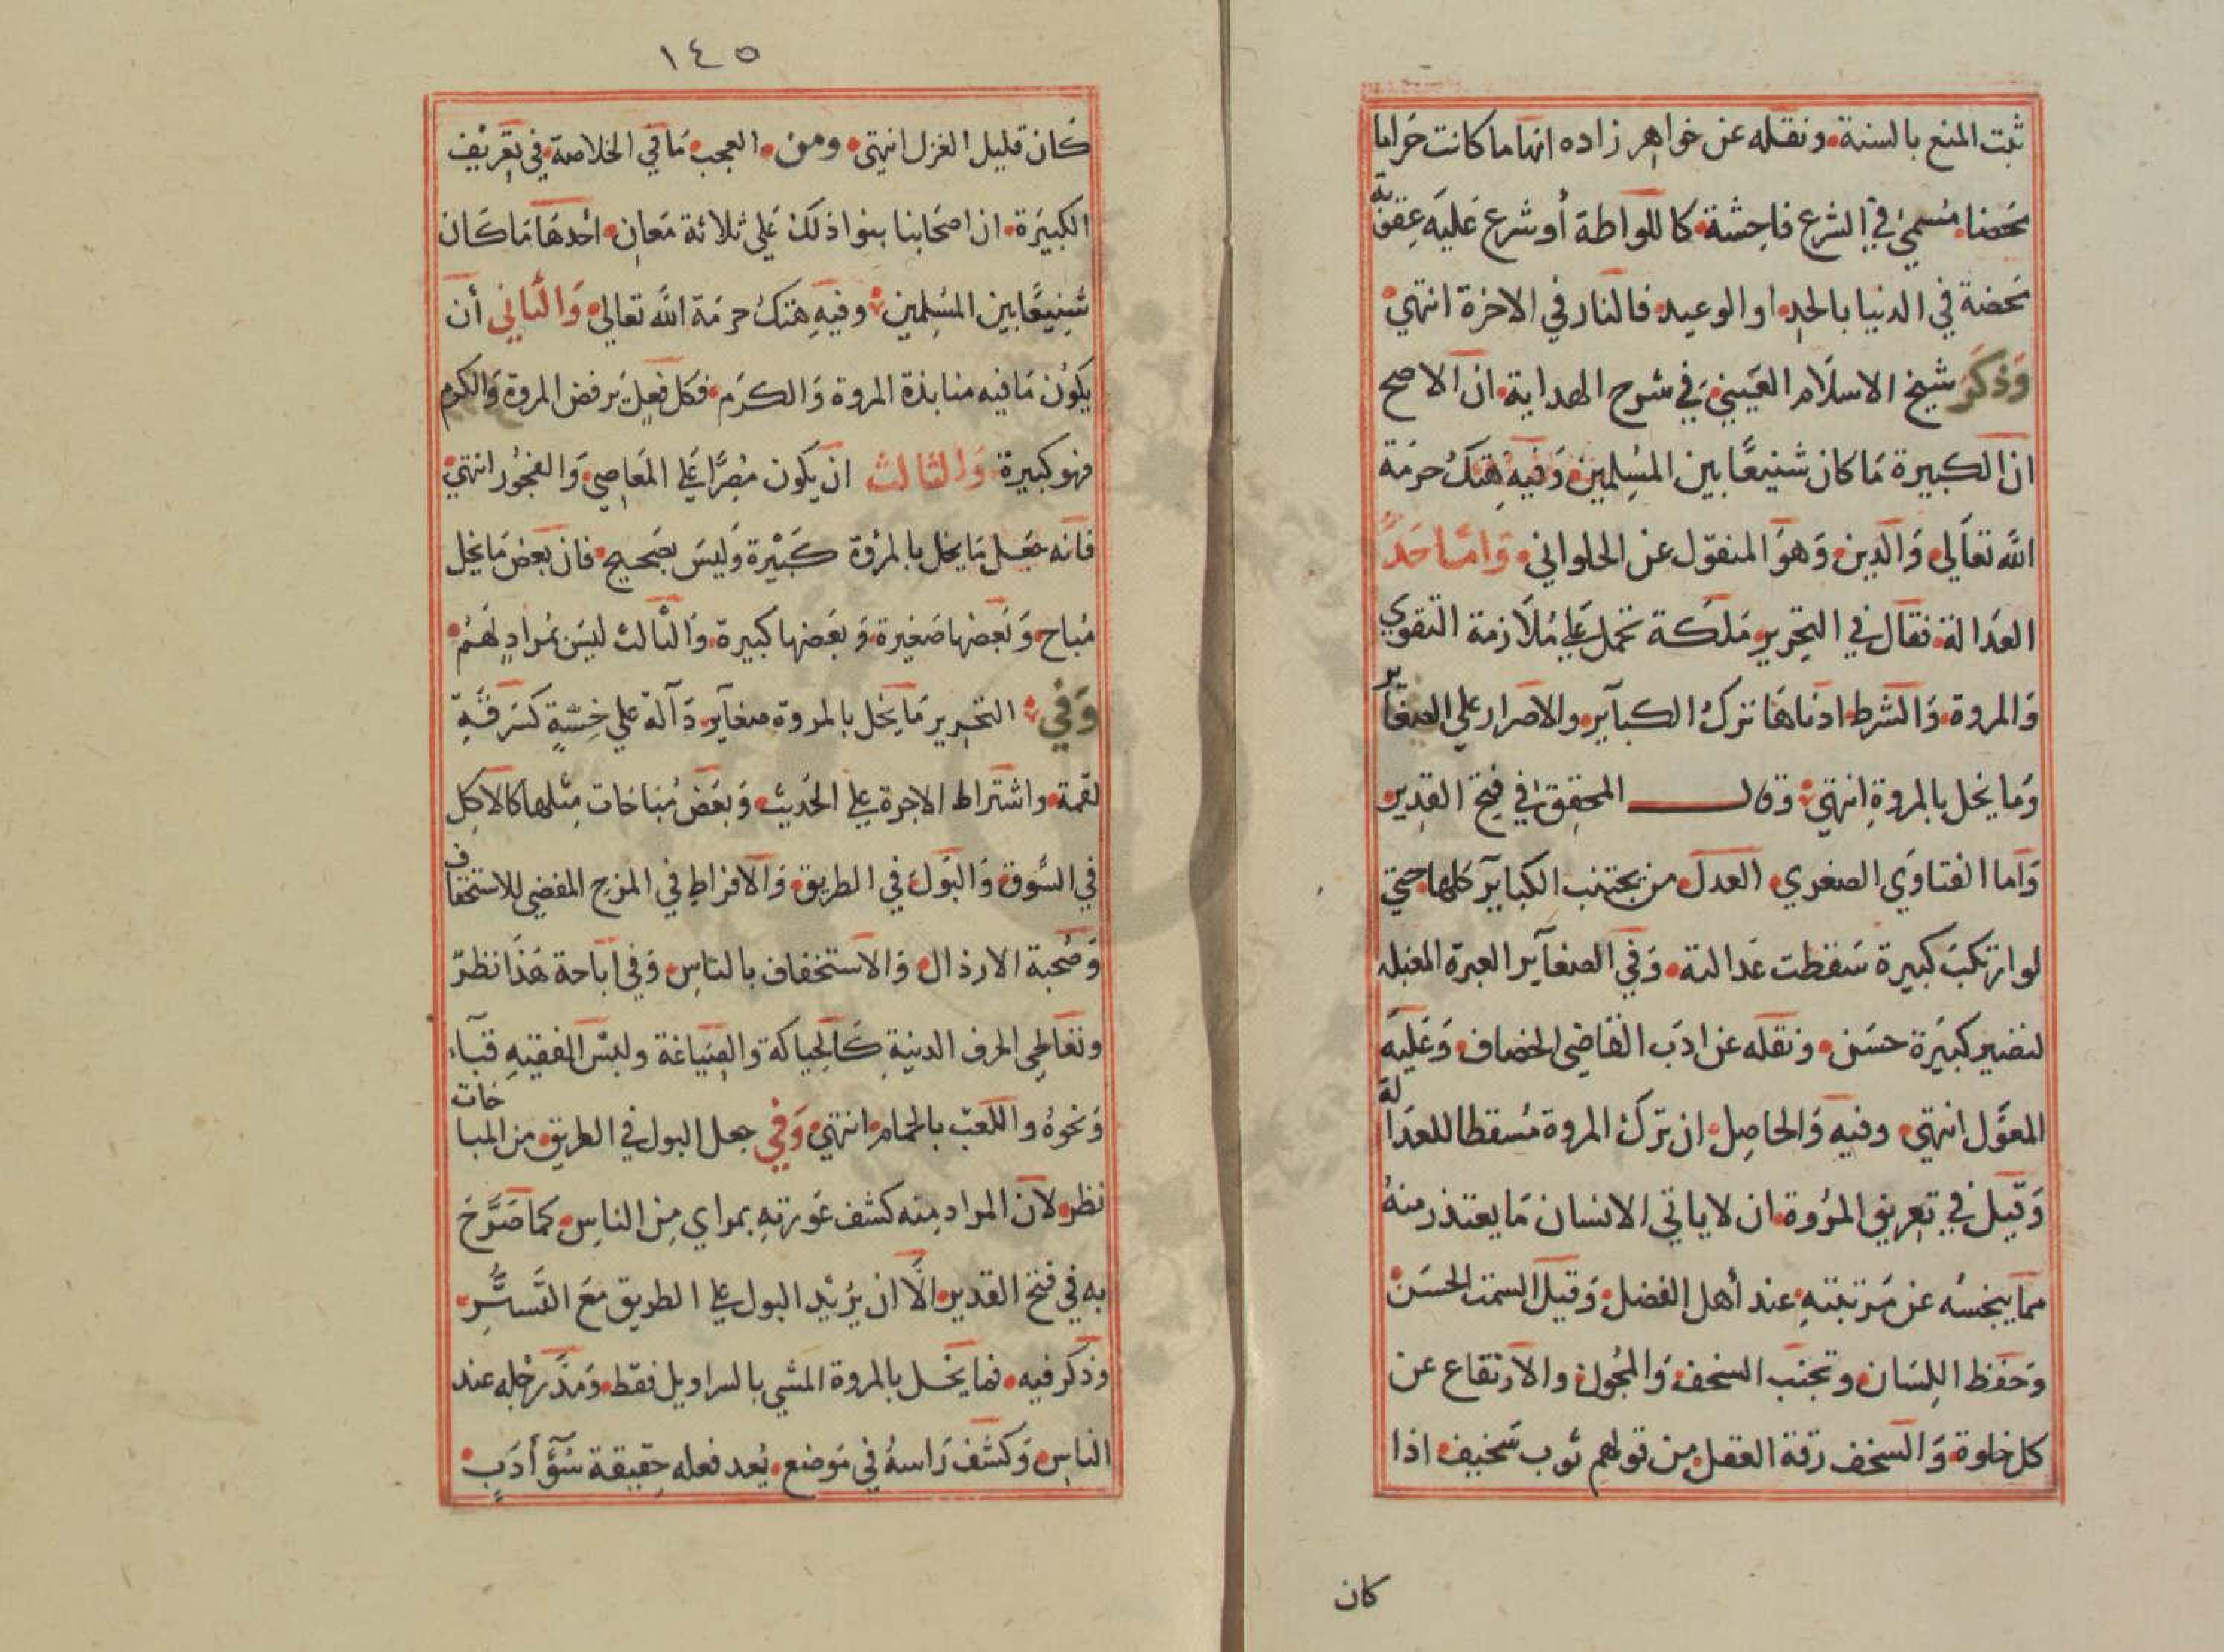 ثبت المنع بالسنة ونقله عن خواهر زاده انها ما كانت حراما
محضا مسمى في الشرع فاحشة كاللواطة أو شرع عليه عقوبة
محضة في الدنيا بالحد او الوعيد فالنار في الاخرة انتهي
وذكر شيخ الاسلام العيني في شرح الهداية ان الاصح
ان الكبيرة ما كان شنيعا بين المسلمين وفيه هتك حرمة
الله تعالي والدين وهو المنقول عن الحلواني واما حد
العدالة فقال في التحرير ملكة تحمل علي ملازمة التقوي
والمروة والشرط ادناها ترك الكبآير والاصرار علي الصغاير
وما يخل بالمروة انتهي وقال المحقق في فتح القدير
واما الفتاوي الصغري العدل من يجتنب الكباير كلها حتي
لو ارتكب كبيرة سقطت عدالته وفي الصغآير العبرة المغبله
لتصير كبيرة حسن ونقله عن ادب القاضي الخصاف وعليه
المعول انتهي وفيه والحاصل ان ترك المروة مسقط للعدالة
وقيل في تعريف المروة ان لا ياتي الانسان ما يعتذر منه
مما يبخسه عن مرتبته عند أهل الفضل وقيل السمت الحسن
وحفظ اللسان وتجنب السخف والمجون والارتفاع عن
كل خلوة والسخف رقة العقل من قولهم ثوب سخيف اذا
كان
١٤٥
كان قليل الغزل انتهي ومن العجب ما في الخلاصة في تعريف
الكبيرة ان اصحابنا بنوا ذلك علي ثلاثة معان احدها ما كان
شنيعا بين المسلمين وفيه هتك حرمة الله تعالي والثاني أن
يكون ما فيه منابذة المروة والكرم فكل فعل يرفض المروة والكرم
فهو كبيرة والثالث ان يكون مصرا علي المعاصي والفجور انتهي
فانه جعل ما يخل بالمروة كبيرة وليس بصحيح فان بعض ما يخل
مباح وبعضها صغيرة وبعضها كبيرة والثالث ليس بمراد لهم
وفي التحرير ما يخل بالمروة صغآير دآلة علي خسة كسرقة
لقمة واشتراط الاجرة علي الحديث وبعض مباحات مثلها كالاكل
في السوق والبول في الطريق والافراط في المزح المفضي للاستخفاف
وصحبة الارذال والاستخفاف بالناس وفي اباحة هذا نظر
وتعاطي الحرف الدنية كالحياكة والصياغة ولبس الفقيه قبآء
ونحوه واللعب بالحمام انتهي وفي جعل البول في الطريق من المباحات
نظر لان المراد منه كشف عورته بمراي من الناس كما صرح
به في فتح القدير الا ان يريد البول علي الطريق مع التستر
وذكر فيه فما يخل بالمروة المشي بالسراويل فقط ومد رجله عند
الناس وكشف راسه في موضع يعد فعله حقيقة سؤ أدب